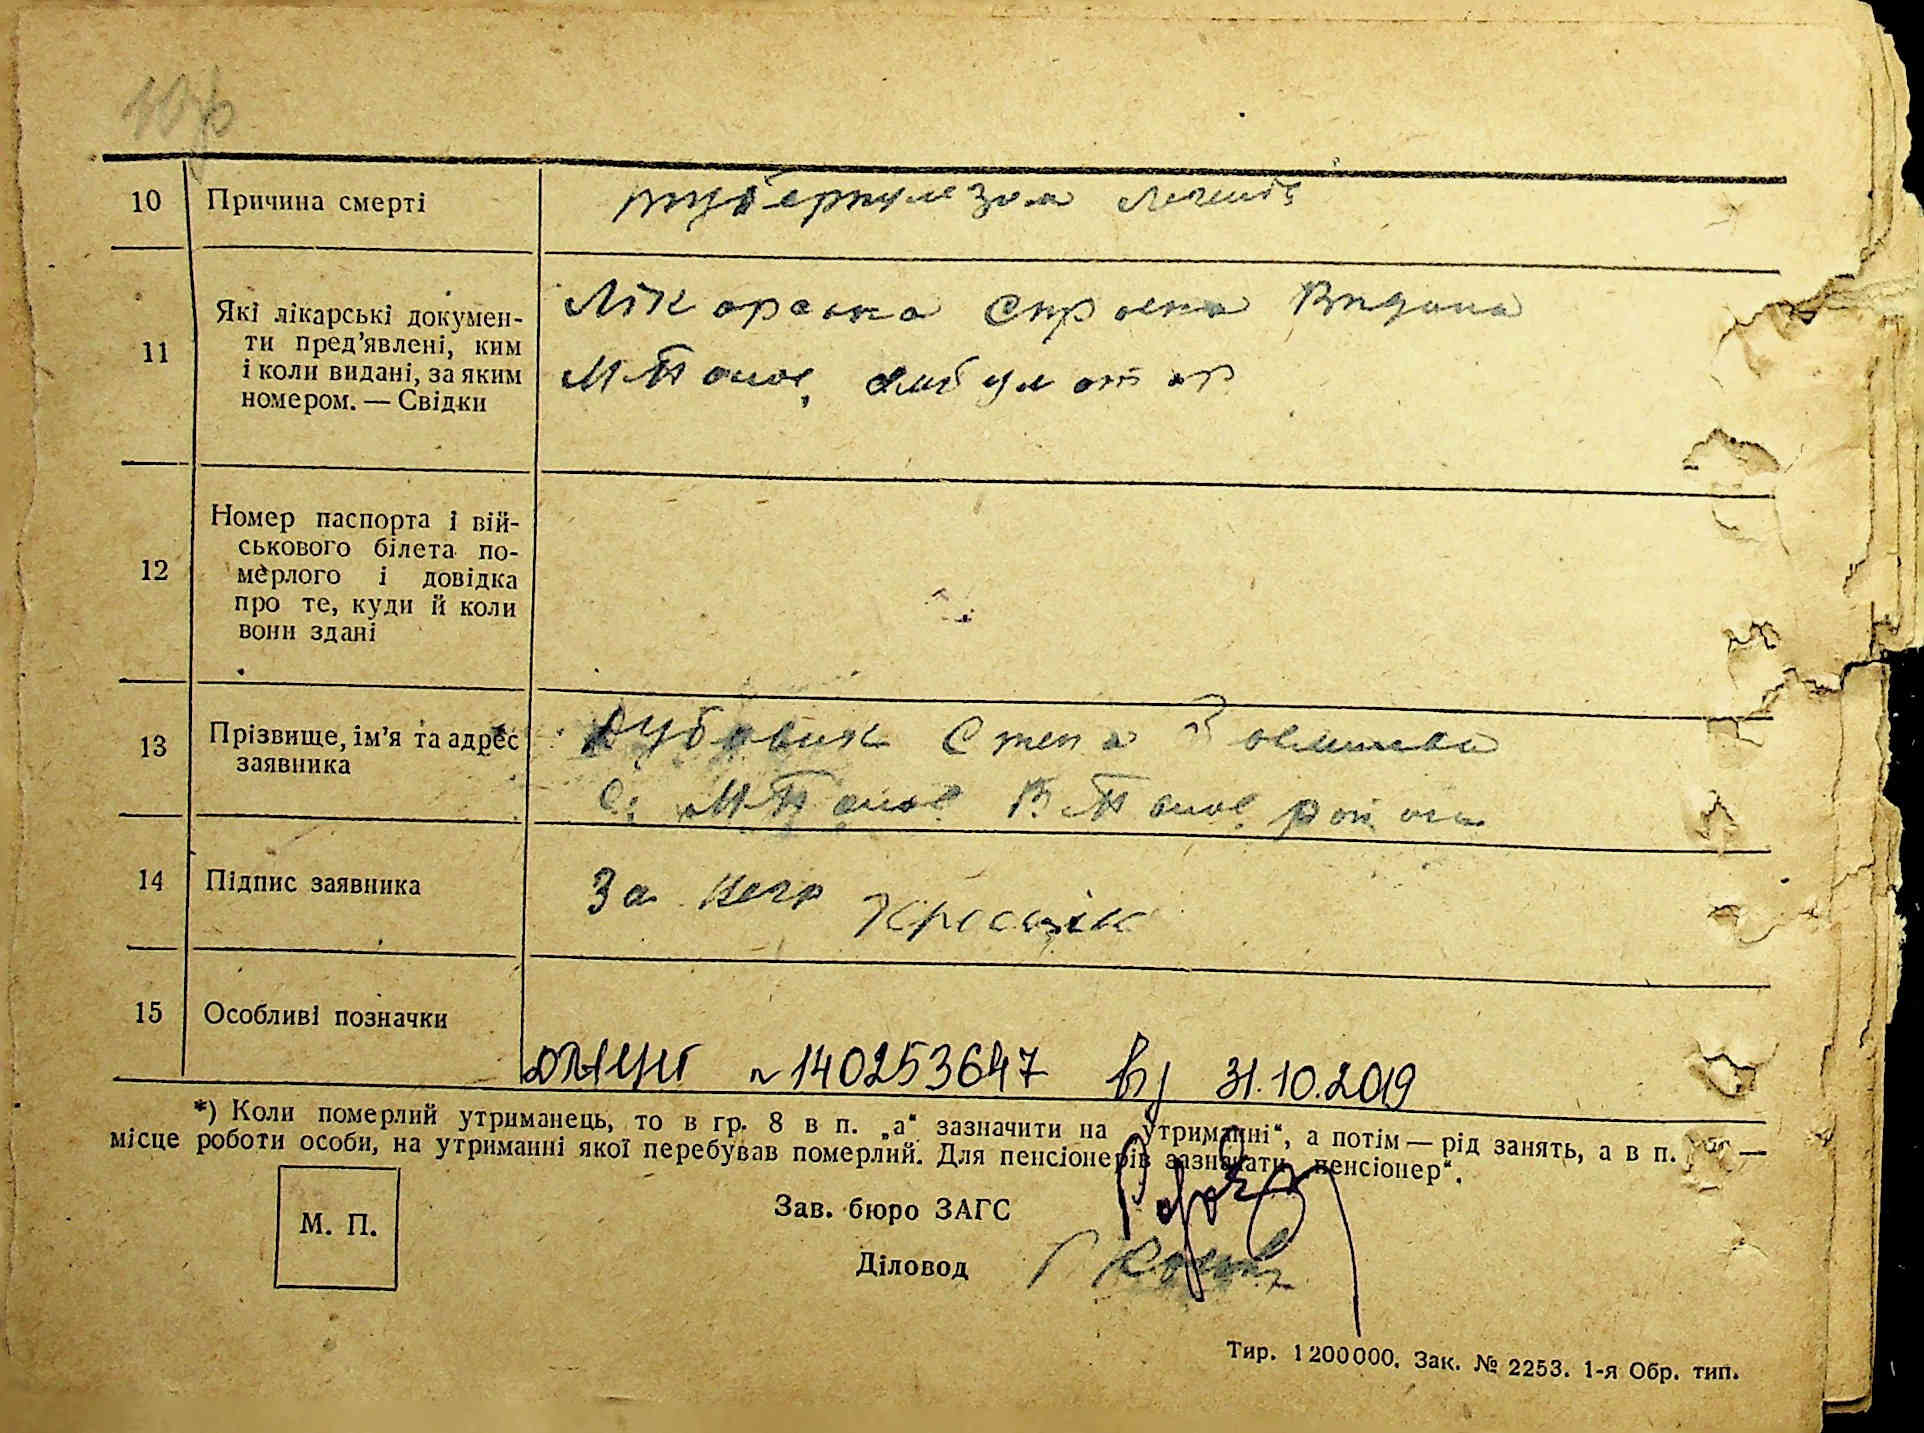 10 Причина смерті туберкулезом легенів
11 Які лікарські докумен-
ти пред'явлені, ким
і коли видані, за яким
номером. — Свідки
Лікарська справка Видана
М Пав. амбулатор
12 Номер паспорта і вій-
ськового білета по-
мерлого і довідка
про те, куди й коли
вони здані
13 Прізвище, ім'я та адрес
заявника
Дубовик Степа
с. М В район
14 Підпис заявника
За него
15 Особливі позначки
N 140253647 31.10.2019
*) Коли померлий утриманець, то в гр. 8 в п. „а“ зазначити на „утриманні“, а потім — рід занять, а в п. —
місце роботи особи, на утриманні якої перебував померлий. Для пенсіонерів зазначати „пенсіонер“.
М. П.
Зав. бюро ЗАГС
Діловод
Тир. 1200000. Зак. № 2253. 1-я Обр. тип.